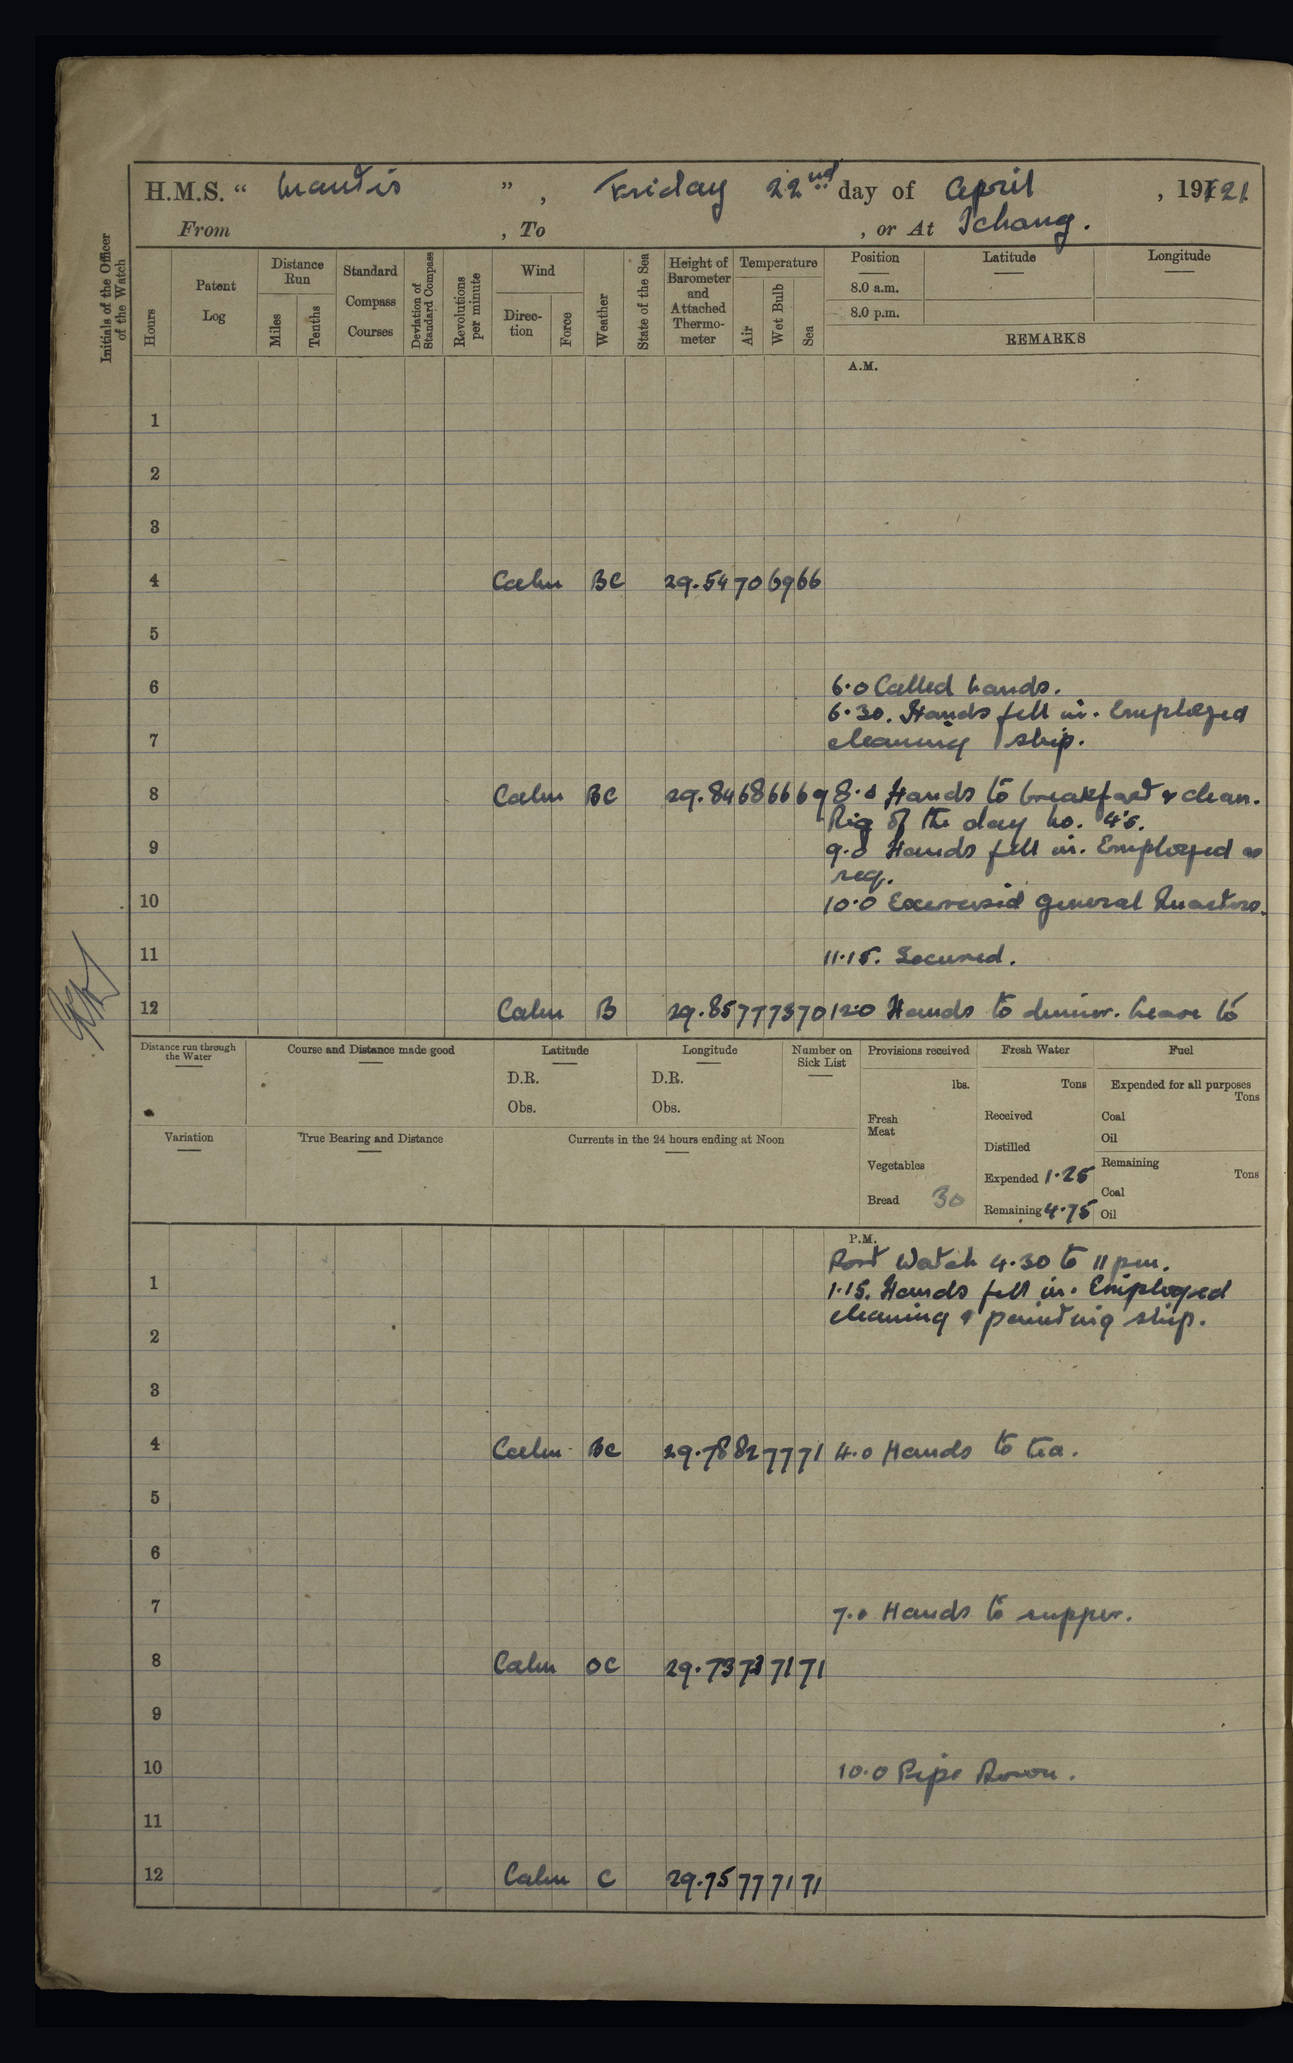 H.M.S. “ Mantis ” , Friday 22nd day of April , 19121
From , To , or At Ichang.
Initials of the Officer of the Watch
Hours
Patent Log
Distance Run
Miles
Tenths
Standard Compass Courses
Deviation of Standard Compass
Revolutions per minute
Wind
Direction
Force
Weather
State of the Sea
Height of Barometer and Attached Thermometer
Temperature
Air
Wet Bulb
Sea
Position
8.0 a.m.
8.0 p.m.
Latitude
Longitude
REMARKS
A.M.
1
2
3
4 Calm BC 29.54 70 69 66
5
6 6.0 Called hands.
6.30. Hands fell in. Employed
7 cleaning ship.
8 Calm BC 29.84 68 66 69 8.0 Hands to breakfast & clean.
Rig of the day no. 4's.
9 9.0 Hands fell in. Employed as
req.
10 10.0 Exercised General Quarters.
11 11.15. Secured.
12 Calm B 29.85 77 73 70 12.0 Hands to dinner. Leave to
Distance run through the Water
Course and Distance made good
Latitude
D.R.
Obs.
Longitude
D.R.
Obs.
Number on Sick List
Provisions received
lbs.
Fresh Meat
Vegetables
Bread 30
Fresh Water
Tons
Received
Distilled
Expended 1.25
Remaining 4.75
Fuel
Expended for all purposes
Tons
Coal
Oil
Remaining
Tons
Coal
Oil
Variation
True Bearing and Distance
Currents in the 24 hours ending at Noon
P.M.
Port Watch 4.30 to 11 pm.
1 1.15. Hands fell in. Employed
cleaning & painting ship.
2
3
4 Calm BC 29.78 82 77 71 4.0 Hands to tea.
5
6
7 7.0 Hands to supper.
8 Calm OC 29.73 73 71 71
9
10 10.0 Pipe Down.
11
12 Calm C 29.75 77 71 71